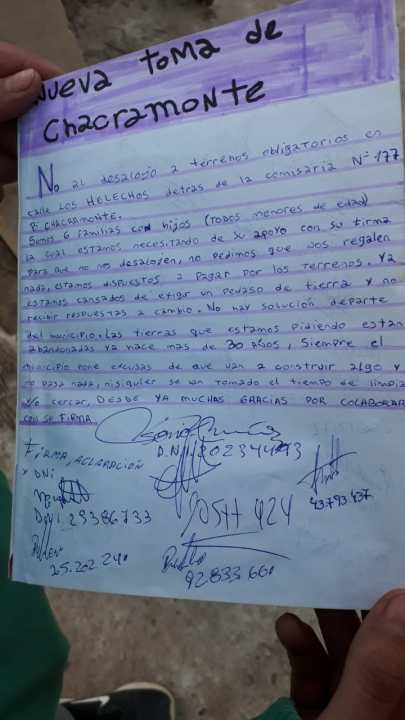 Nueva toma de
Chacramonte
No al desalojo a terrenos obligatorios en
calle LOS HELECHOS detras de la comisaria Nº 177
B: CHACRAMONTE.
Somos 6 familias con hijos (TODOS menores de edad)
la cual estamos necesitando de su apoyo con su firma
para que no nos desalojen, no pedimos que nos regalen
nada, estamos dispuestos a pagar por los terrenos. Ya
estamos cansados de exigir un pedaso de tierra y no
recibir respuestas a cambio. No hay solución departe
del municipio. Las tierras que estamos pidiendo estan
abandonadas ya hace mas de 30 años, siempre el
municipio pone excusas de que van a construir algo y
no pasa nada, nisiquier se an tomado el tiempo de limpiar
y/o cercar. DESDE YA MUCHAS GRACIAS POR COLABORAR
con su FIRMA
FIRMA, ACLARACIÓN
Y DNI
D.N.I 20234493
D.N.I 29386733
43793437
25.202.240
92833660